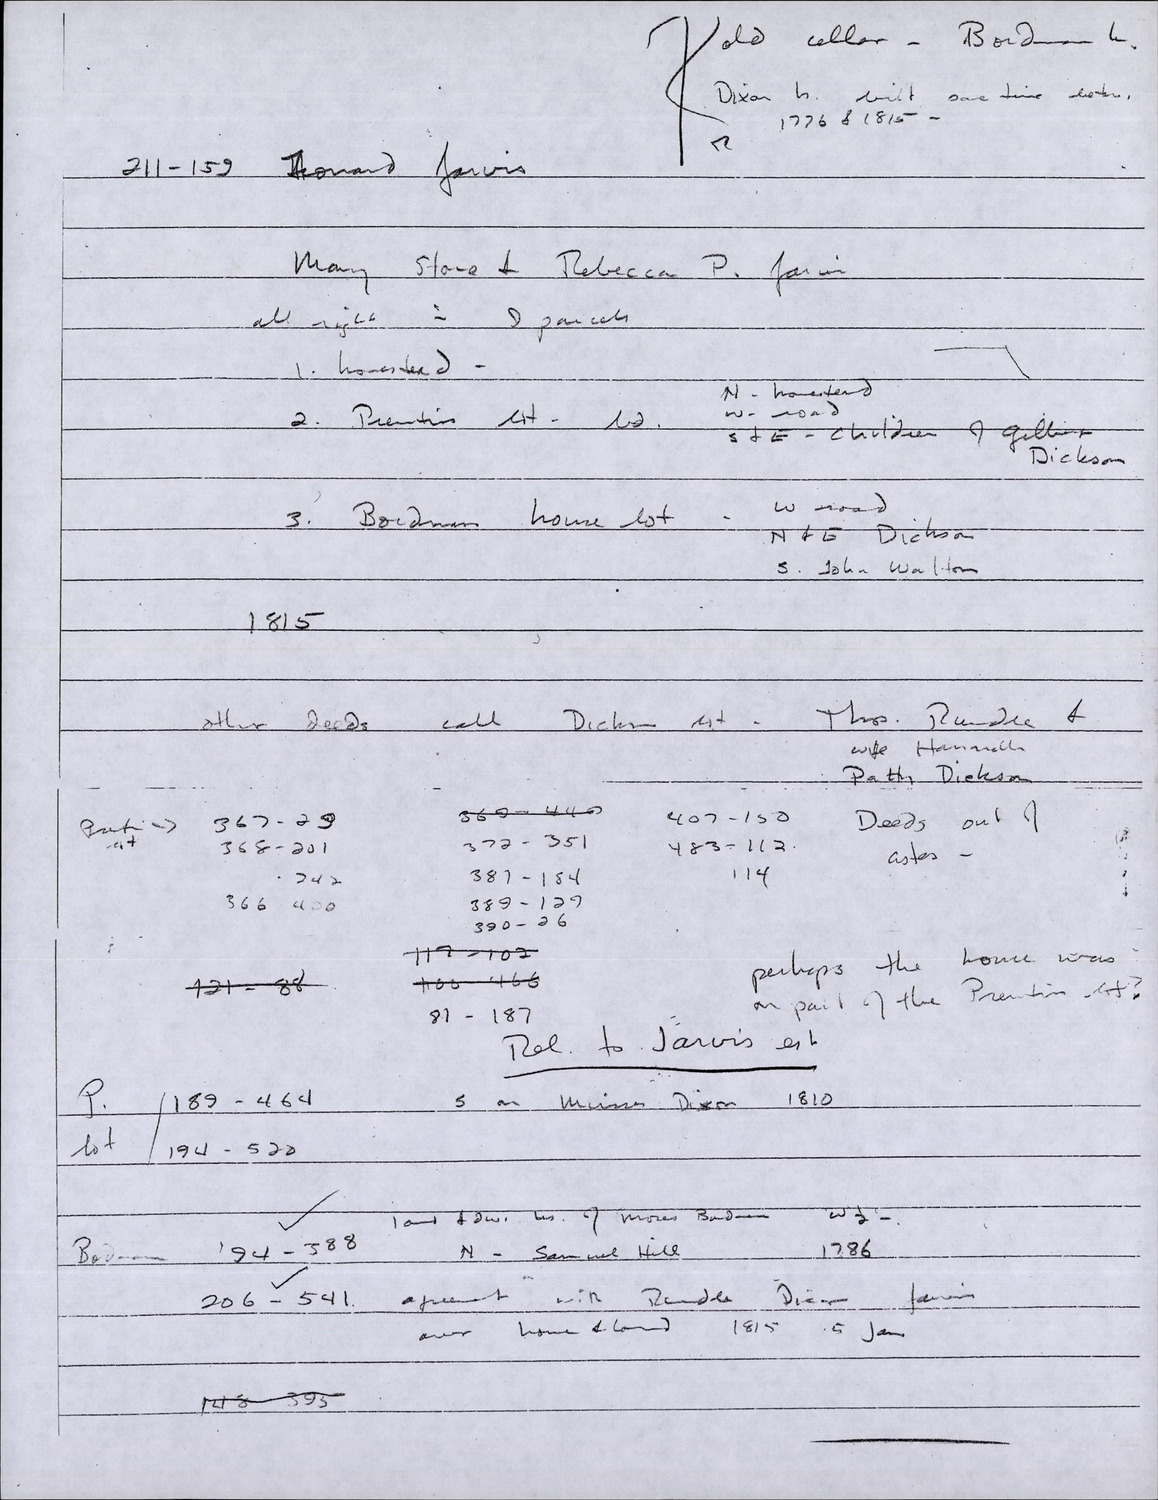 old cellar - Bordman h.
Dixon h. built some time betw.
1776 & 1815 -
211-159 Leonard Jarvis
Mary Stone & Rebecca P. Jarvis
all right in 3 parcels
1. homestead -
2. Prentiss lot - bd.
N - homestead
W - road
S & E - children of Gilbert
Dickson
3. Bordman house lot -
W road
N & E Dickson
S. John Walton
1815
other deeds call Dickson lot - Thos. Rundle &
wife Hannah
Patty Dickson
367-29
368-201
242
366 400
369-440
372-351
387-184
389-129
390-26
407-150
483-112
114
Deeds out of
estes -
117-102
121-88
100-466
81-187
perhaps the house was
on part of the Prentiss lot?
Rel. to Jarvis est
P. 189-464 S on Dixon 1810
lot 194-520
land & dw. hs. of Moses Bordman
Bordman 194-388 N - Samuel Hill 1786
206-541 agreement with Rundle Dixon Jarvis
over home & land 1815 5 Jan
148-395